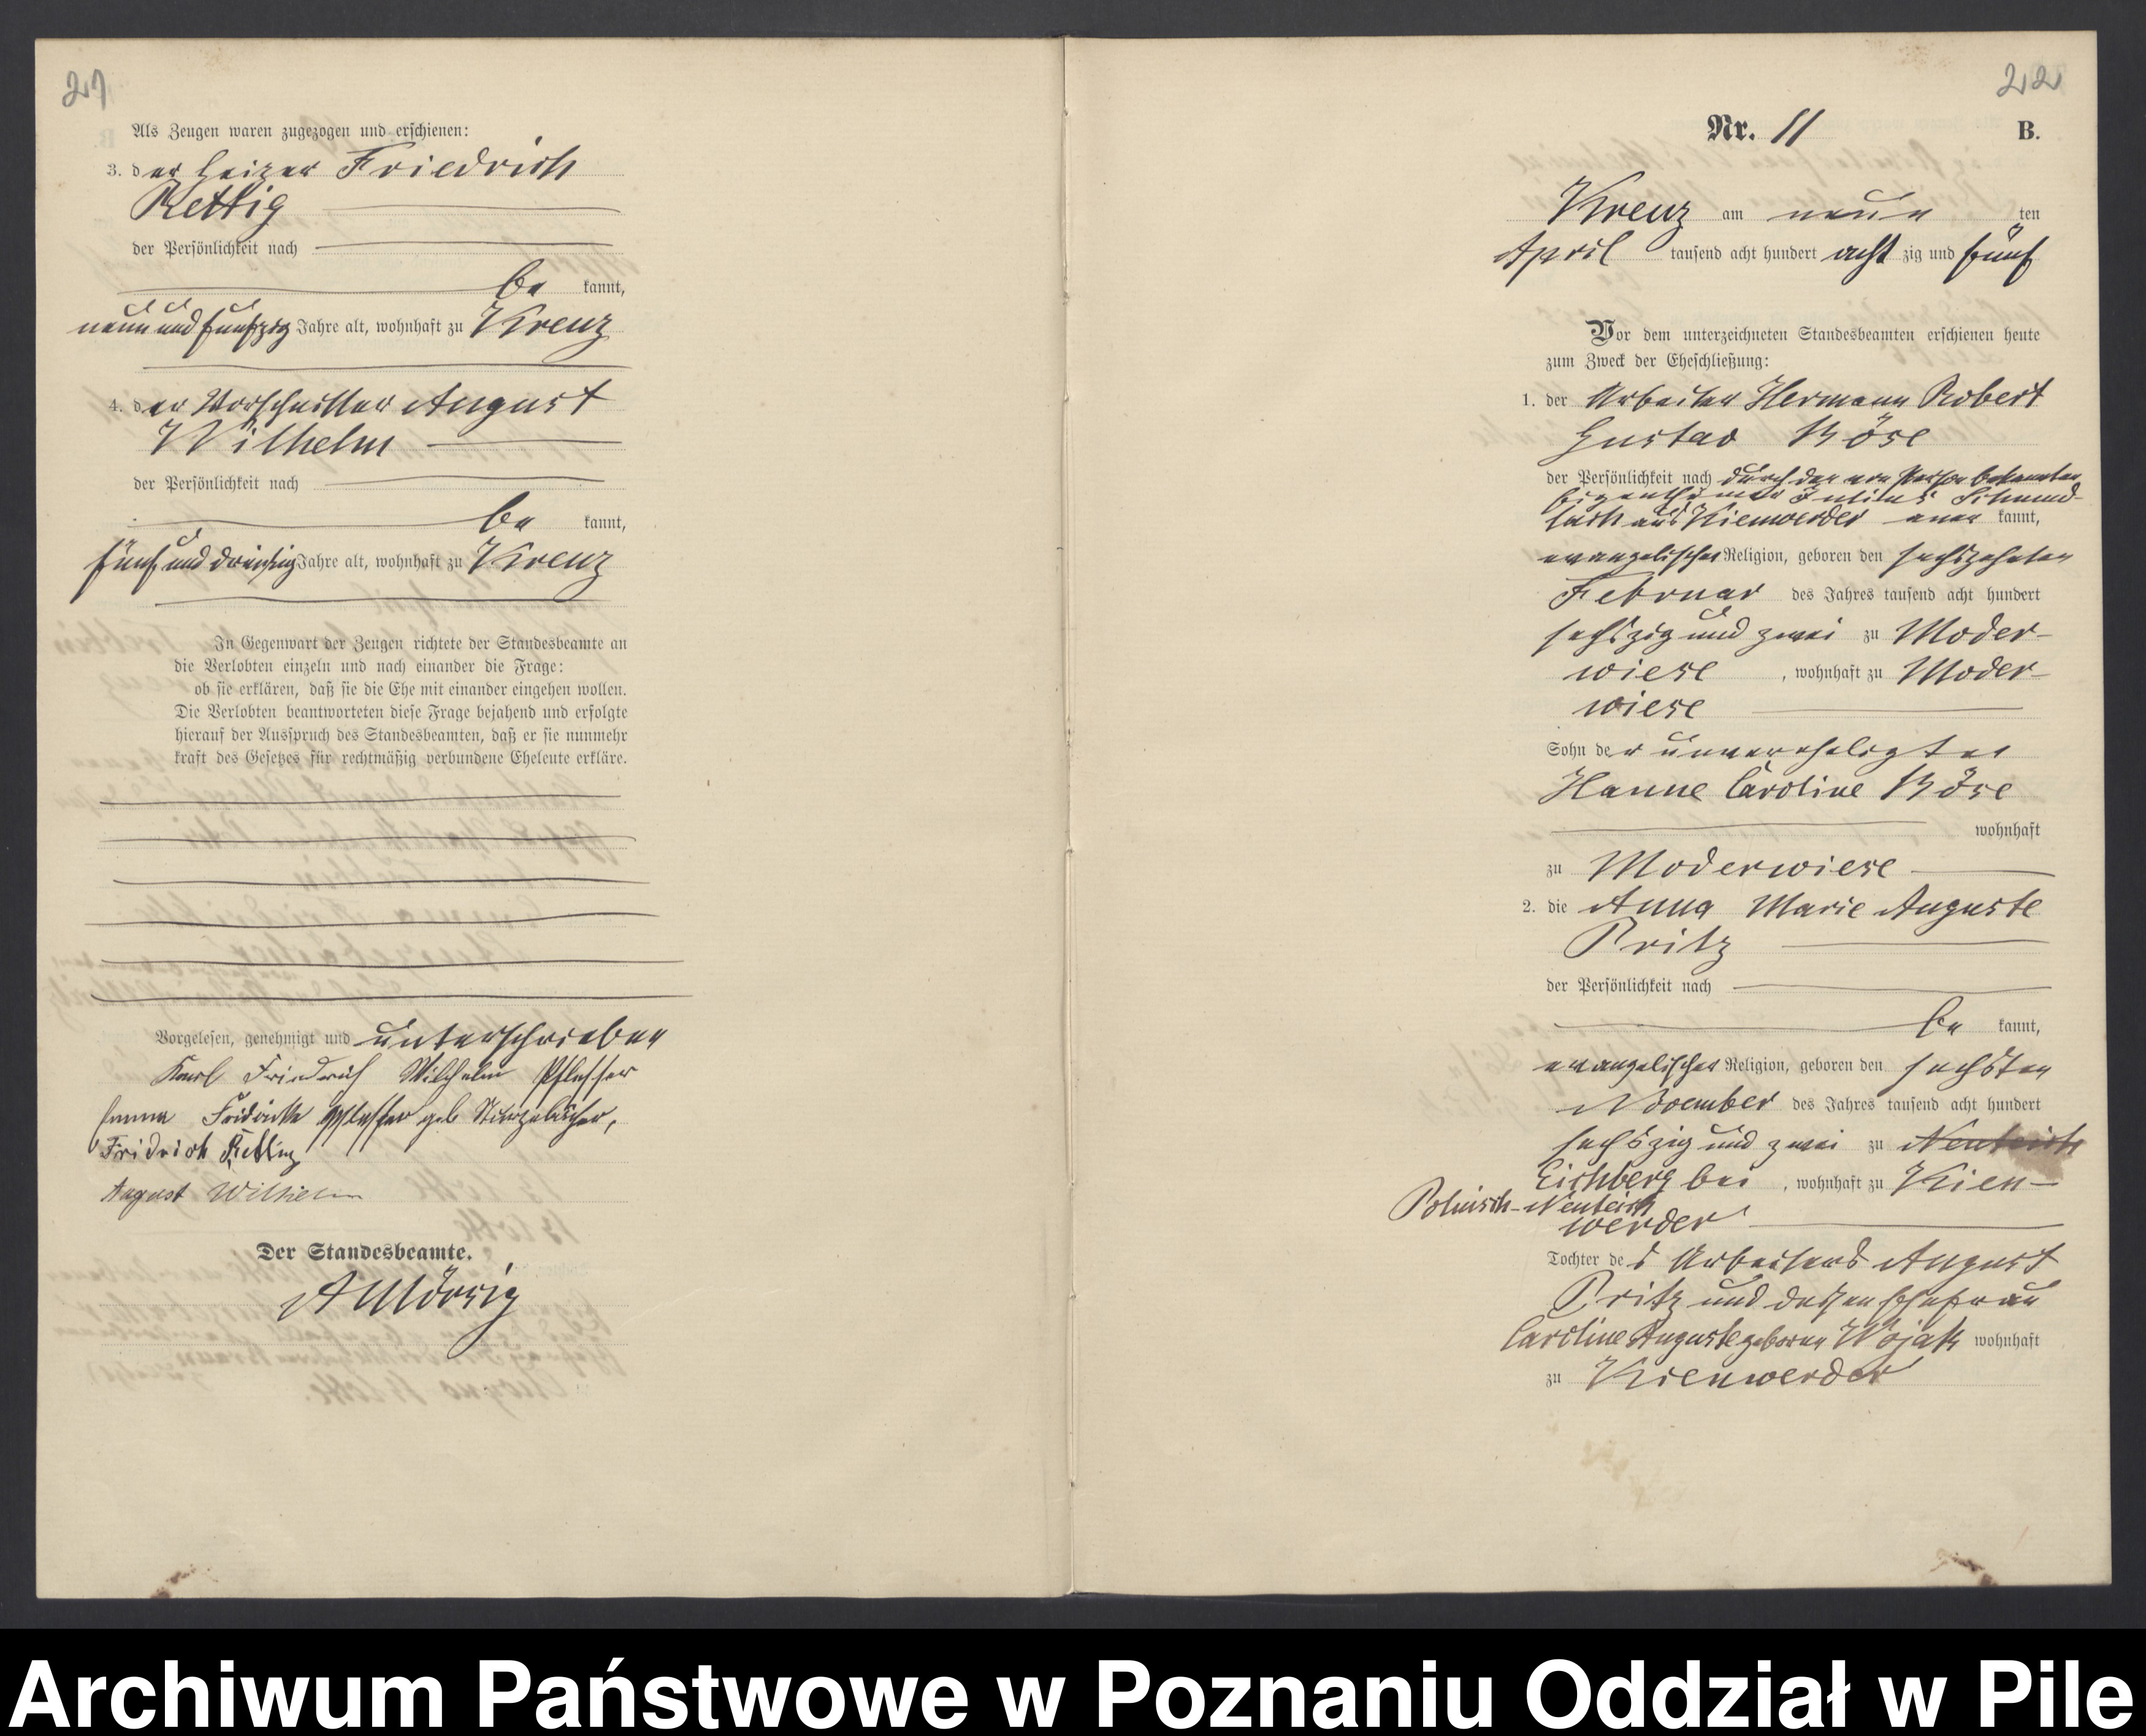 21
Als Zeugen waren zugezogen und erschienen:
3. der Heizer Friedrich
Rettig
der Persönlichkeit nach
be kannt,
neun und fünfzig Jahre alt, wohnhaft zu Kreuz
4. der Vorschnitter August
Wilhelm
der Persönlichkeit nach
be kannt,
fünf und dreißig Jahre alt, wohnhaft zu Kreuz
In Gegenwart der Zeugen richtete der Standesbeamte an
die Verlobten einzeln und nach einander die Frage:
ob sie erklären, daß sie die Ehe mit einander eingehen wollen.
Die Verlobten beantworteten diese Frage bejahend und erfolgte
hierauf der Ausspruch des Standesbeamten, daß er sie nunmehr
kraft des Gesetzes für rechtmäßig verbundene Eheleute erkläre.
Vorgelesen, genehmigt und unterschrieben
Karl Friedrich Wilhelm
Emma geb
Fridrich Rettig
August Wilhelm
Der Standesbeamte.
22
Nr. 11 B.
Kreuz am neun ten
April tausend acht hundert acht zig und fünf
Vor dem unterzeichneten Standesbeamten erschienen heute
zum Zweck der Eheschließung:
1. der Arbeiter Hermann Robert
Gustav Böse
der Persönlichkeit nach durch den von Person bekannten
Eigenthümer Julius Schmud-
lach aus Kienwerder aner kannt,
evangelischer Religion, geboren den sechszehnten
Februar des Jahres tausend acht hundert
sechszig und zwei zu Moder-
wiese , wohnhaft zu Moder-
wiese
Sohn der unverehelichten
Hanne Caroline Böse
wohnhaft
zu Moderwiese
2. die Anna Marie Auguste
Pritz
der Persönlichkeit nach
be kannt,
evangelischer Religion, geboren den sechsten
November des Jahres tausend acht hundert
sechszig und zwei zu Neuteich
Eichberg bei , wohnhaft zu Kien-
Polnisch-Neuteich
werder
Tochter des Arbeiters August
Pritz und dessen Ehefrau
Caroline Auguste geborne Wojak wohnhaft
zu Kienwerder
Archiwum Państwowe w Poznaniu Oddział w Pile